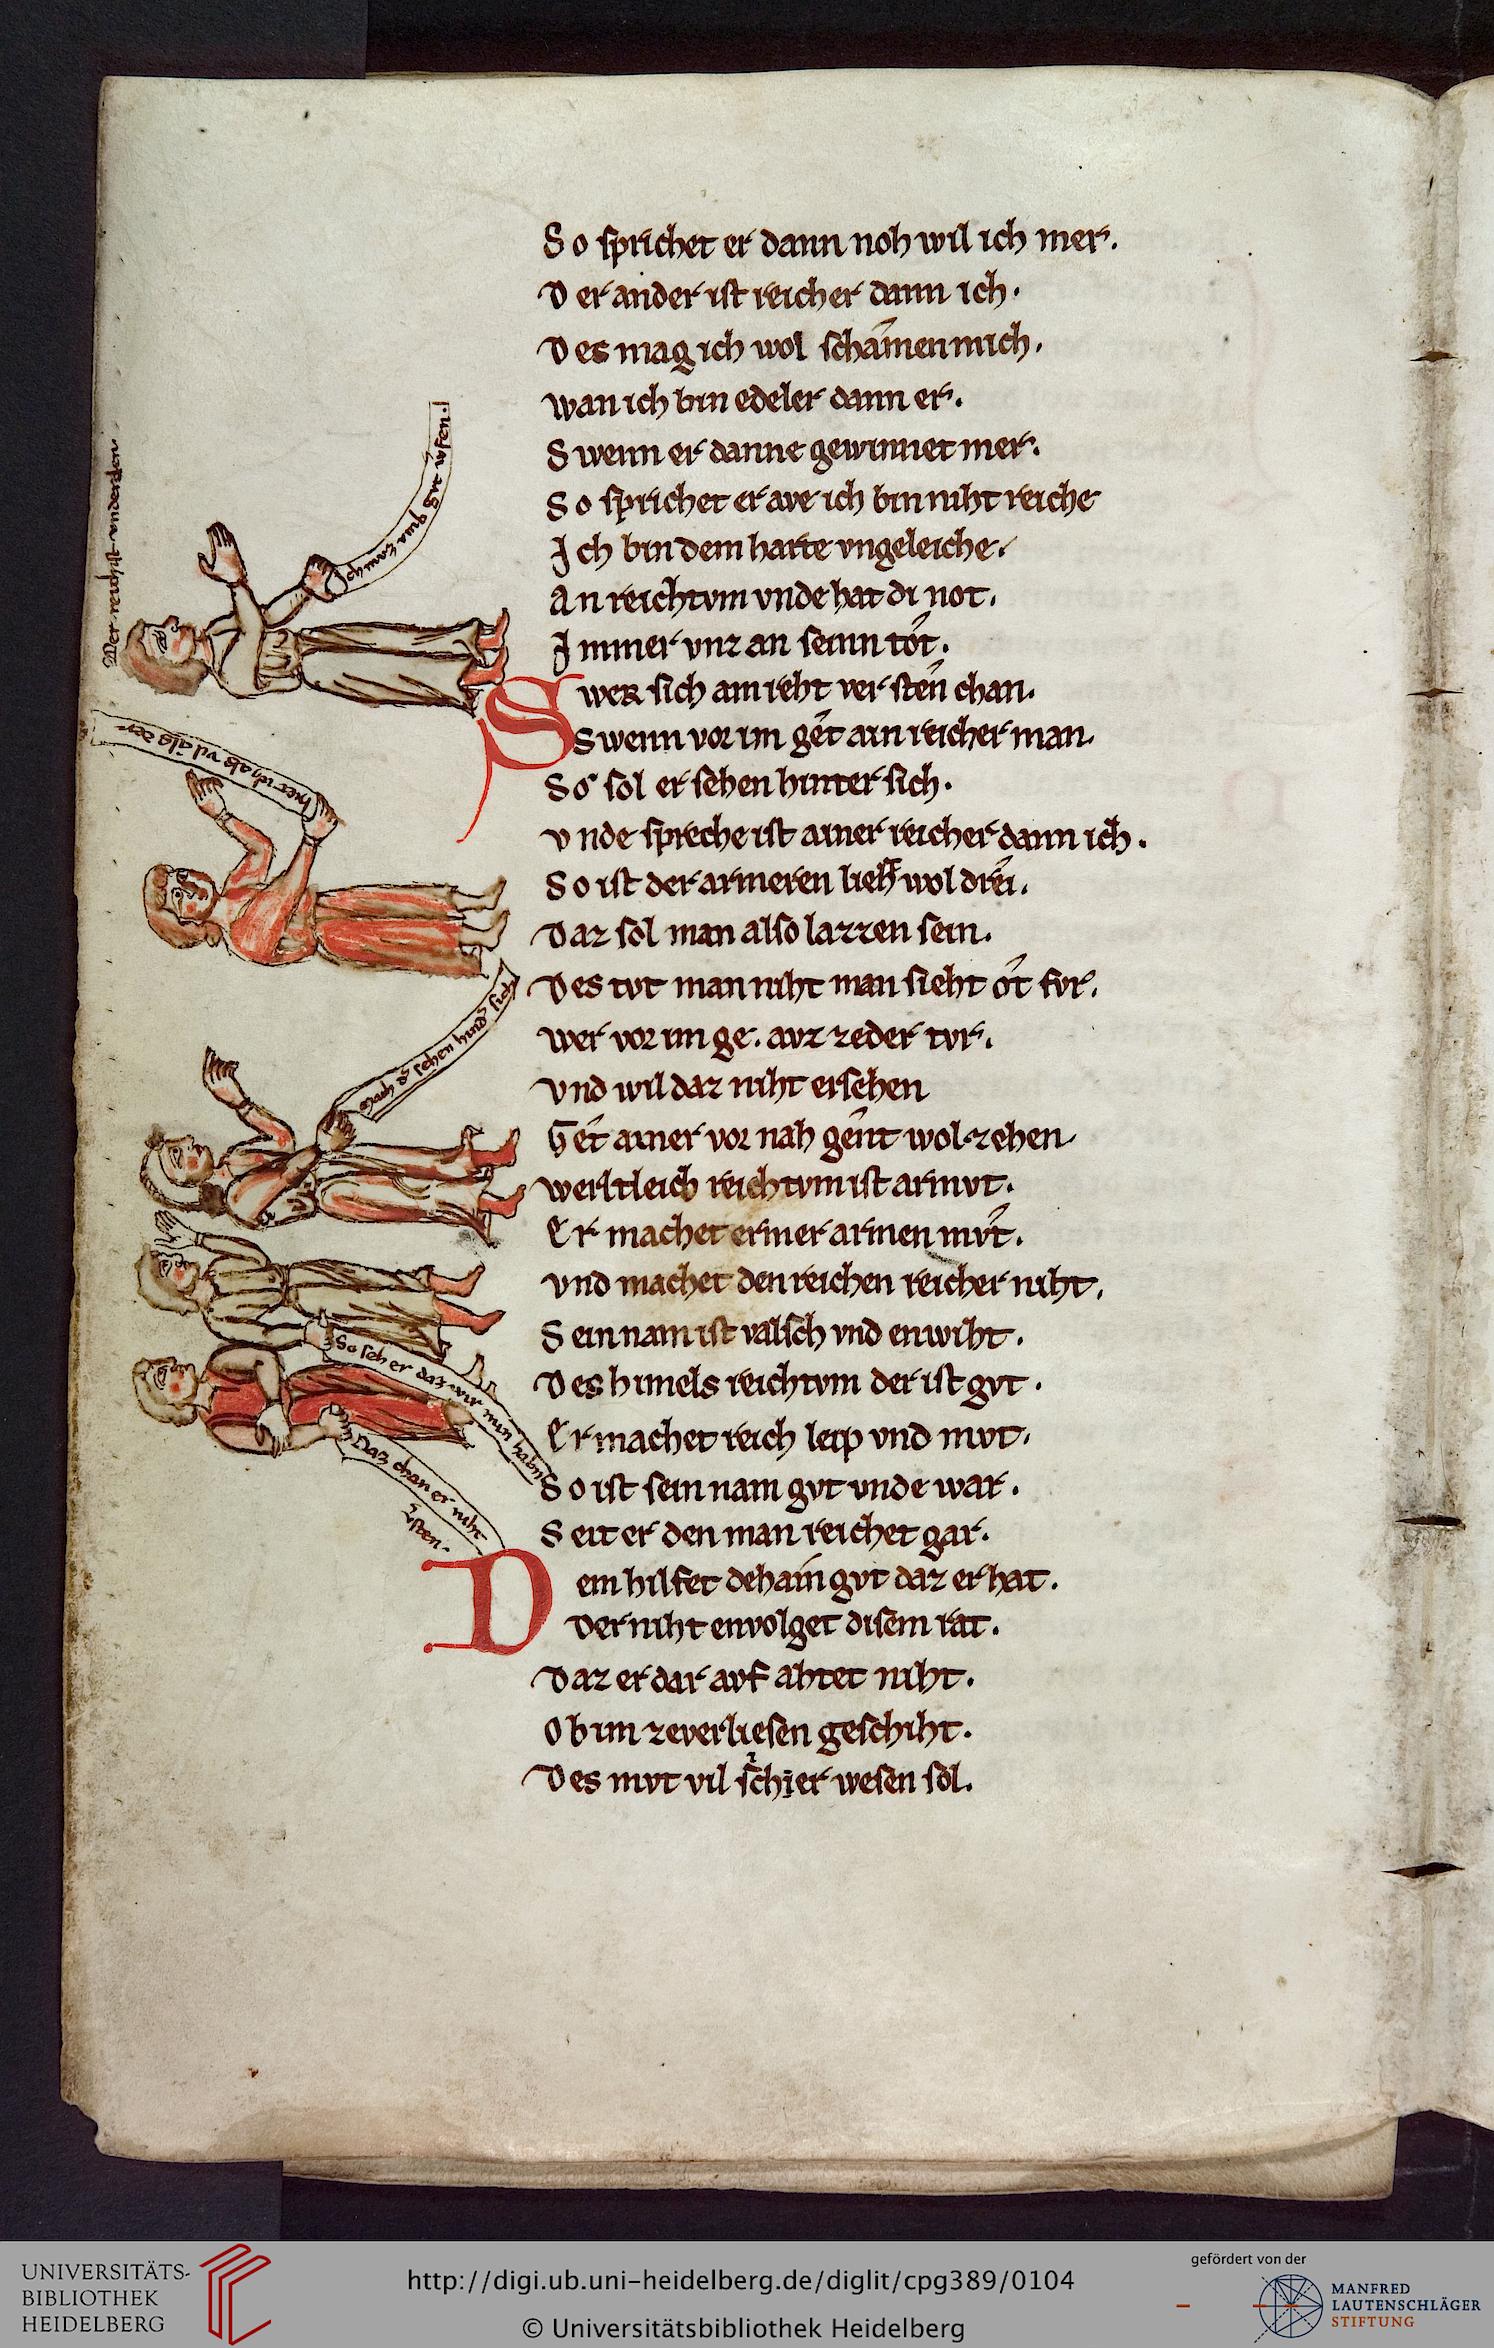 So sprichet er dann noh wil ich mer.
Der ander ist reicher dann ich.
Des mag ich wol schamen mich.
wan ich bin edeler dann er.
Swenn er danne gewinnet mer.
So sprichet er ave ich bin niht reiche
Ich bin dem harte vngeleiche.
An reichtvm vnde hat di not.
Immer vnz an seinn tot.
Swer sich am reht versten chan.
Swenn vor im get ain reicher man.
So sol er sehen hinter sich.
vnde spreche ist ainer reicher dann ich.
So ist der armeren lieht wol drei.
Daz sol man also lazzen sein.
Des tvt man niht man sieht ot fvr.
wer vor im ge. avz zeder tvr.
vnd wil daz niht ersehen
Get ainer vor nah gent wol zehen
werltleich reichtvm ist armvt.
Er machet ermer armen mvt.
vnd machet den reichen reicher niht.
Sein nam ist valsch vnd enwiht.
Des himels reichtvm der ist gvt.
Er machet reich leip vnd mvt.
So ist sein nam gvt vnde war.
Seit er den man reichet gar.
Dem hilfet dehain gvt daz er hat.
Der niht envolget disem rat.
Daz er dar avf ahtet niht.
Ob im zeverliesen geschiht.
Des mvt vil schier wesen sol.
Wer reichst vnder den
sehen hind sich
So seh er daz wir min habn
Daz chan er niht
UNIVERSITÄTS-
BIBLIOTHEK
HEIDELBERG
http://digi.ub.uni-heidelberg.de/diglit/cpg389/0104
© Universitätsbibliothek Heidelberg
gefördert von der
MANFRED
LAUTENSCHLÄGER
STIFTUNG